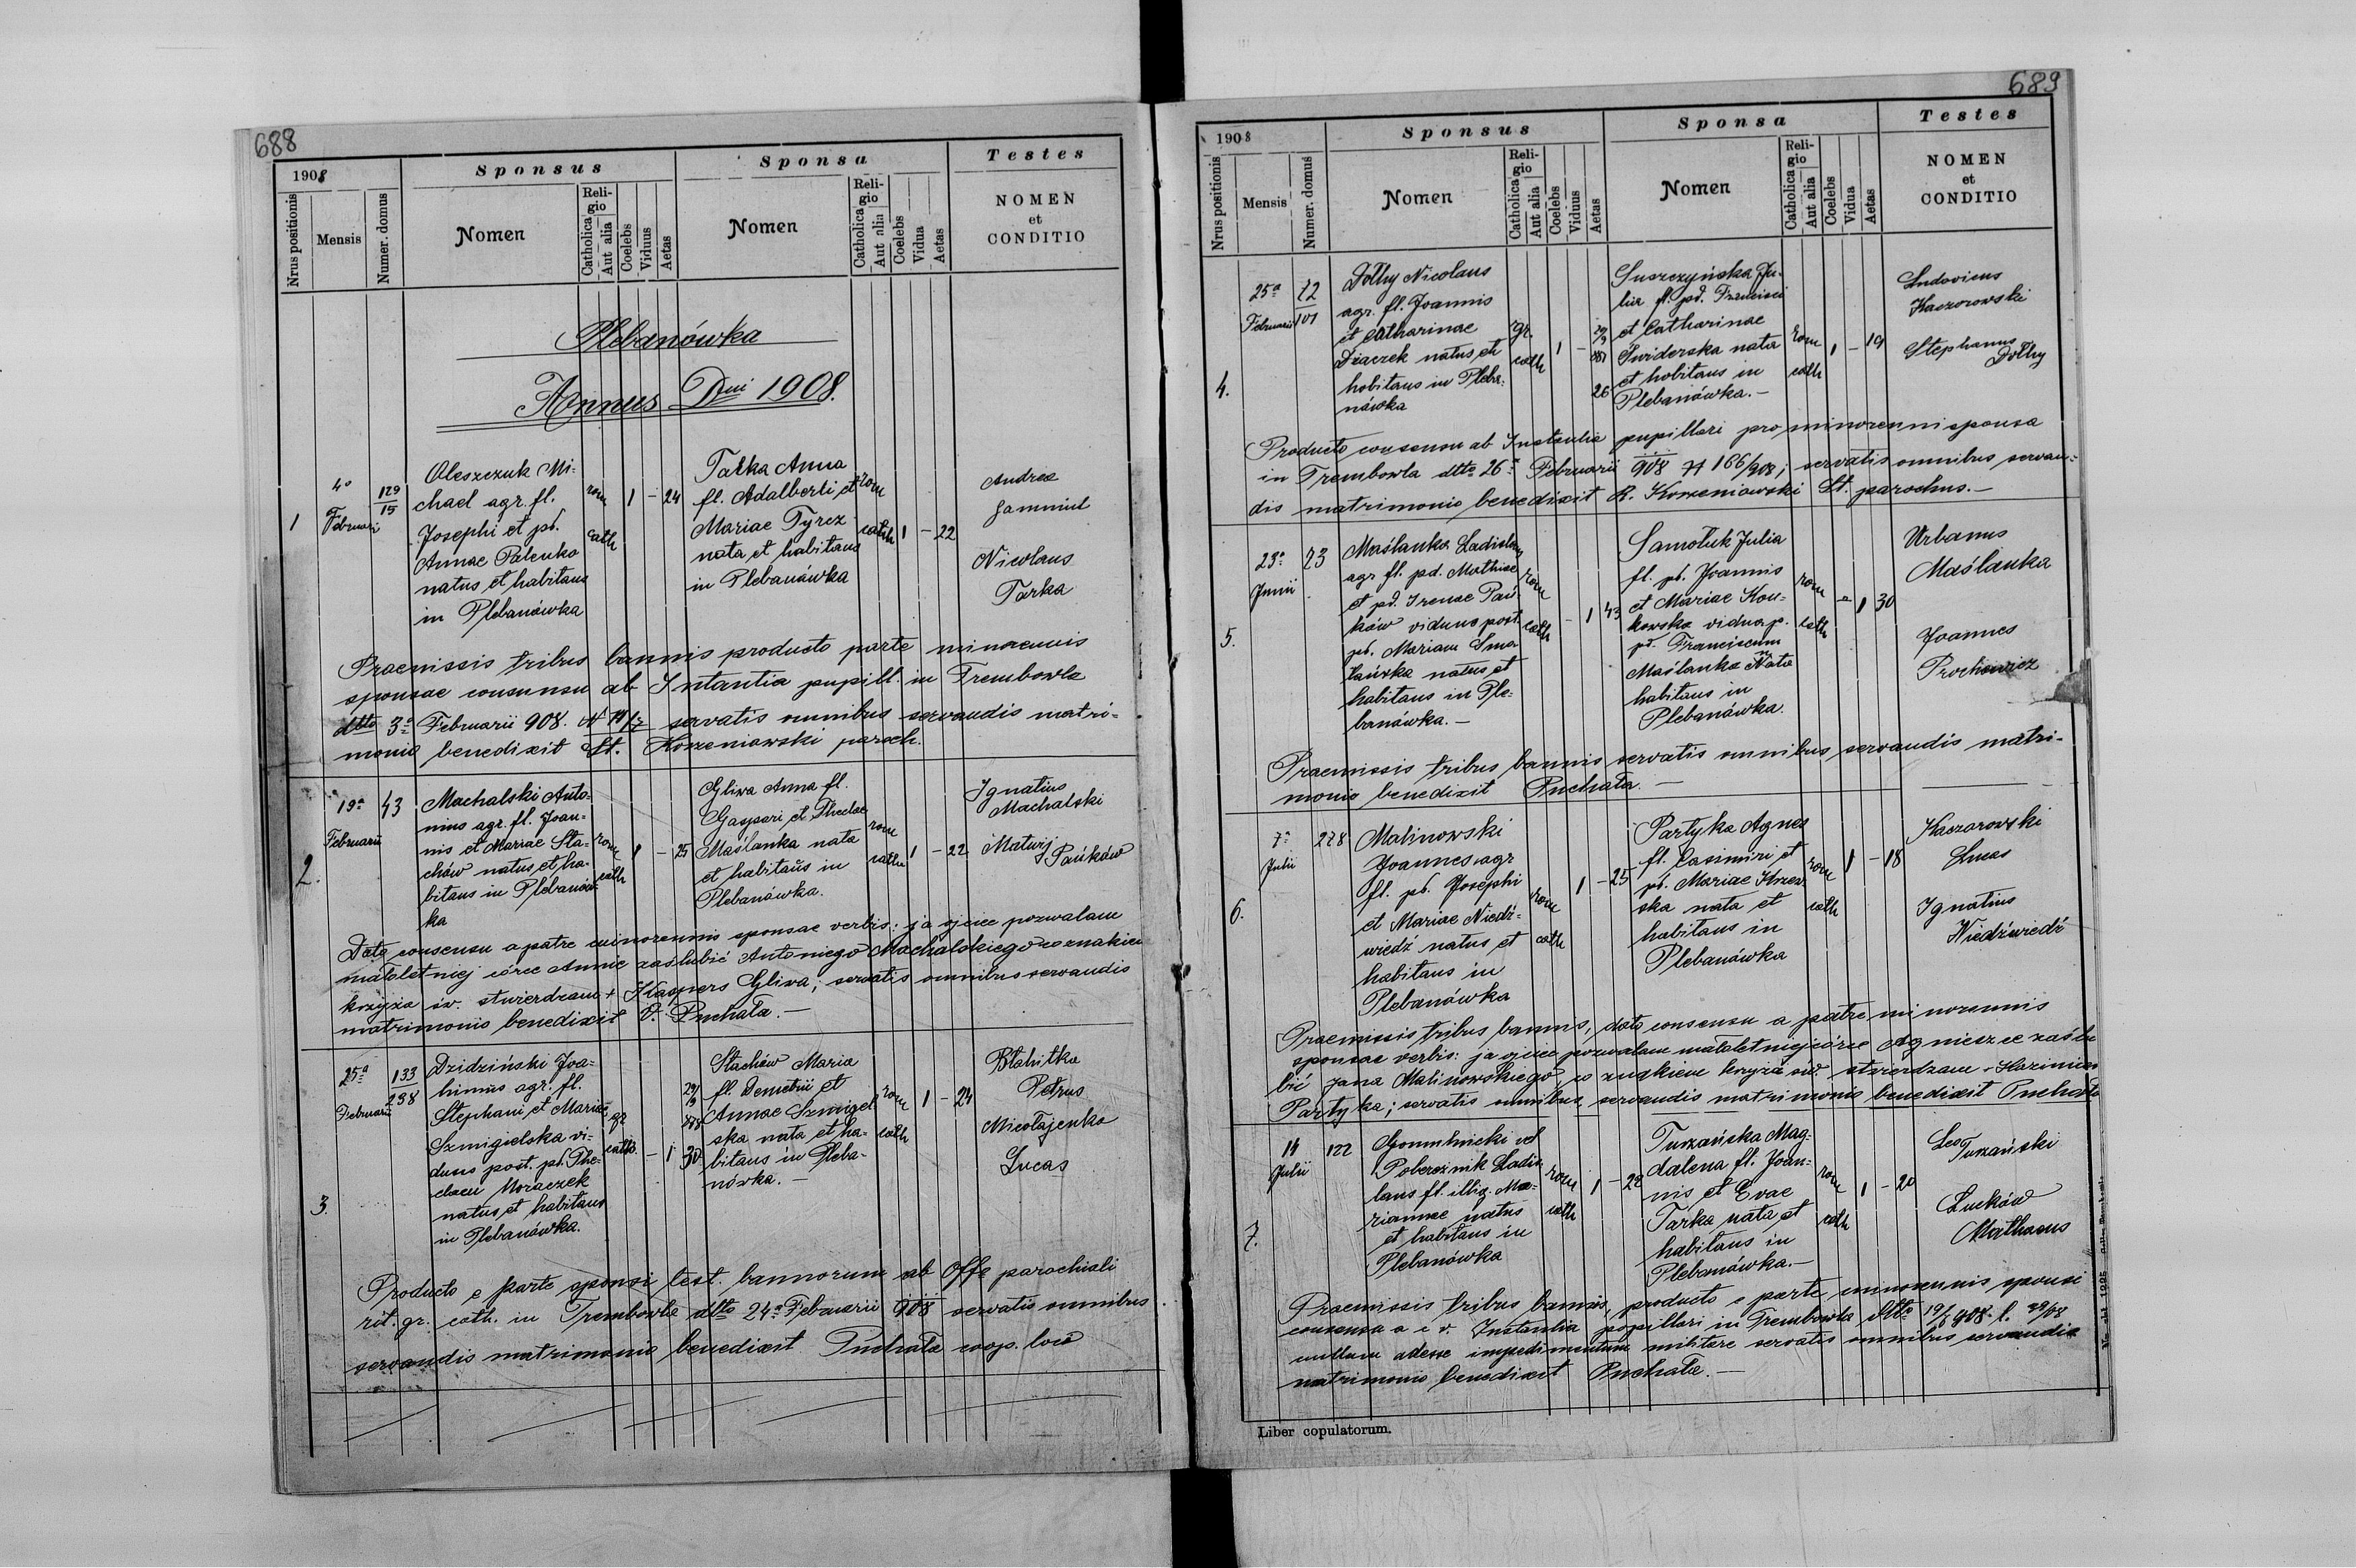 688
1908
Sponsus
Sponsa
Testes
Nrus positionis
Mensis
Numer. domus
Nomen
Religio
Catholica
Aut alia
Coelebs
Viduus
Aetas
Nomen
Religio
Catholica
Aut alia
Coelebs
Vidua
Aetas
NOMEN
et
CONDITIO
Plebanówka
Annus Dni 1908.
1
4o
Februarii
129
15
Oleszczuk Mi-
chael agr. fl.
Josephi et pd.
Annae Palenko
natus et habitans
in Plebanówka
rom
cath
1 - 24
Tarka Anna
fl. Adalberti et
Mariae Tyrcz
nata et habitans
in Plebanówka
rom
cath
1 - 22
Andreas
Nicolaus
Tarka
Praemissis tribus bannis producto parte minorennis
sponsae consensu ab Intantia pupill. in Trembowla
dtto 3a Februarii 908. servatis omnibus servandis matri-
monio benedixit St. Korzeniowski paroch.
2.
19a
Februarii
43
Machalski Anto-
nius agr. fl. Joan-
nis et Mariae Sta-
chów natus et ha-
bitans in Plebanów-
ka
rom
cath
1 - 25
Gliwa Anna fl.
Gaspari et Theclae
Maślanka nata
et habitans in
Plebanówka.
rom
cath
1 - 22
Ignatius
Machalski
Matwij Pańków
Dato consensu a patre minorennis sponsae verbis: ja ojciec pozwalam
małoletniej córce Annie zaślubić Antoniego Machalskiego co znakiem
krzyża św. stwierdzam + Kaspers Gliwa; servatis omnibus servandis
matrimonio benedixit V. Puchała. -
3.
25a
Februarii
133
238
Dzidziński Joa-
himus agr. fl.
Stephani et Mariae
Szmigielska vi-
duus post. pd. The-
clam Moraczek
natus et habitans
in Plebanówka.
gr
cath.
- 1
29/9
878
30
Stachów Maria
fl. Demetrii et
Annae Szmigel
ska nata et ha-
bitans in Pleba-
nówka. -
rom
cath
1 - 24
Błahitka
Petrus
Micołajenko
Lucas
Producto e parte sponsi test. bannorum ab Offo parochiali
rit. gr. cath. in Trembowla dtto 24a Februarii 908 servatis omnibus
servandis matrimonio benedixit Puchała coop. loco
689
1908
Sponsus
Sponsa
Testes
Nrus positionis
Mensis
Numer. domus
Nomen
Religio
Catholica
Aut alia
Coelebs
Viduus
Aetas
Nomen
Religio
Catholica
Aut alia
Coelebs
Vidua
Aetas
NOMEN
et
CONDITIO
4.
25a
Februarii
72
101
Dołhy Nicolaus
agr. fl. Joannis
et Catharinae
Dżaczek natus et
habitans in Pleba-
nówka
gr.
cath
1 -
26
Suszczyńska Ju-
lia fl. pd. Francisci
et Catharinae
Świderska nata
et habitans in
Plebanówka. -
rom
cath
1 - 19
Ludovicus
Kaczorowski
Stephanus
Dołhy
Producto consensu ab Instantia pupillari pro minorenni sponsa
in Trembowla dtto 26a Februarii 908 166/908; servatis omnibus servan-
dis matrimonio benedixit R. Korzeniowski St. parochus. -
5.
23a
Junii
73
Maślanka Ladislaus
agr fl. pd. Mathiae
et pd. Irenae Pań-
ków viduus post.
pd. Mariam Sma-
łańska natus et
habitans in Ple-
banówka. -
rom
cath
- 1 43
Samoluk Julia
fl. pd. Joannis
et Mariae Kou-
kowska vidua p.
pd. Franciscum
Maślanka Nata
habitans in
Plebanówka.
rom
cath
- 1 30
Urbanus
Maślanka
Joannes
Prochowicz
Praemissis tribus bannis servatis omnibus servandis matri-
monio benedixit Puchała. -
6.
7a
Julii
278
Malinowski
Joannes agr
fl. pd. Josephi
et Mariae Niedź-
wiedź natus et
habitans in
Plebanówka
rom
cath
1 - 25
Partyka Agnes
fl. Casimiri et
pd. Mariae Krzew
ska nata et
habitans in
Plebanówka
rom
cath
1 - 18
Kaczorowski
Lucas
Ignatius
Niedźwiedź
Praemissis tribus bannis, dato consensu a patre minorennis
sponsae verbis: ja ojciec pozwalam małoletniej córce Agnieszce zaślu
bić Jana Malinowskiego, co znakiem krzyża św. stwierdzam + Kazimierz
Partyka; servatis omnibus servandis matrimonio benedixit Puchała
7.
14
Julii
122
vel
Pobereżnik Ladis
laus fl. illig. Ma-
riannae natus
et habitans in
Plebanówka
rom
cath
1 - 28
Turzańska Mag-
dalena fl. Joan-
nis et Evae
Tarka nata et
habitans in
Plebanówka. -
rom
cath
1 - 20
Leo Turzański
Lucków
Mathaeus
Praemissis tribus bannis, producto e parte minorennis sponsi
consensu a c. v. Instantia pupillari in Trembowla dtto 19/6 908. l.
nullum adesse impedimentum militare servatis omnibus servandis
matrimonio benedixit Puchała. -
Liber copulatorum.